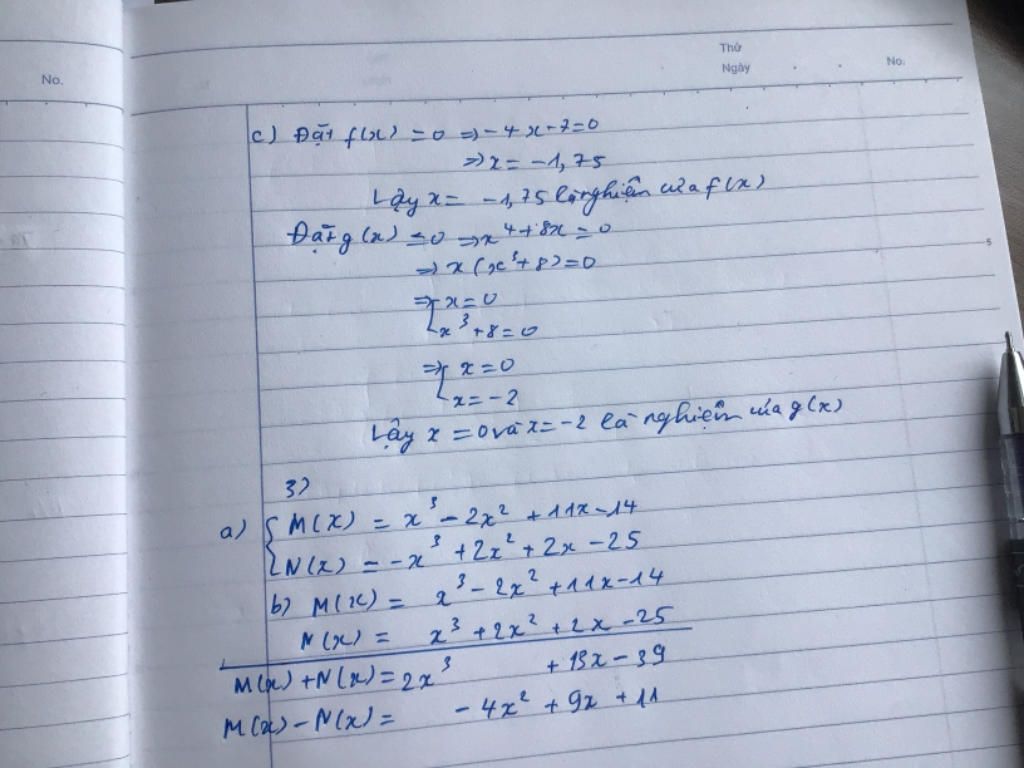 No.
Thứ
Ngày
No.
c) Đặt f(x) = 0 ⇒ -4x-7=0
⇒ x = -1,75
Vậy x = -1,75 là nghiệm của f(x)
Đặt g(x) = 0 ⇒ x⁴ + 8x = 0
⇒ x(x³+8)=0
⇒ [ x = 0
x³ + 8 = 0
⇒ [ x = 0
x = -2
Vậy x = 0 và x = -2 là nghiệm của g(x)
3)
a) { M(x) = x³ - 2x² + 11x - 14
N(x) = -x³ + 2x² + 2x - 25
b) M(x) = x³ - 2x² + 11x - 14
N(x) = x³ + 2x² + 2x - 25
M(x) + N(x) = 2x³ + 13x - 39
M(x) - N(x) = - 4x² + 9x + 11